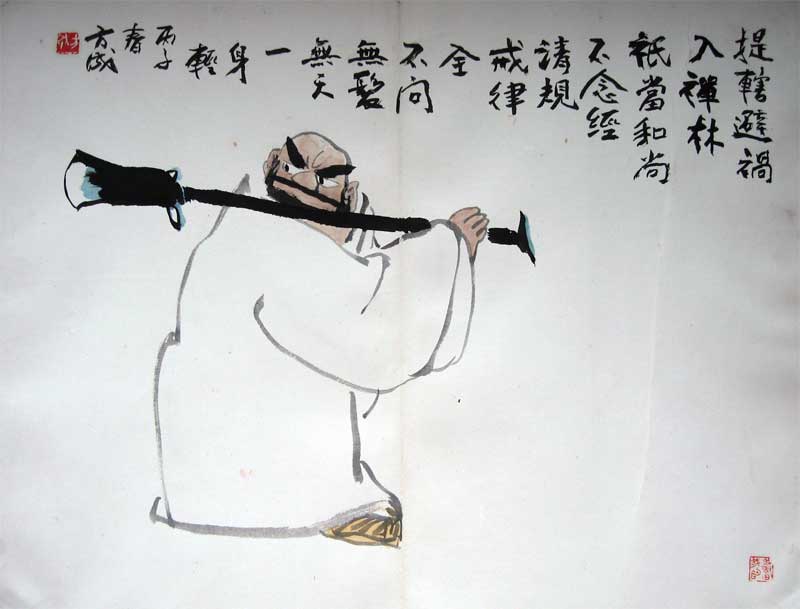 提轄避禍
入禪林
衹當和尚
不念經
清規
戒律
全
不問
無髮
無天
一
身
輕
丙子
春
方成